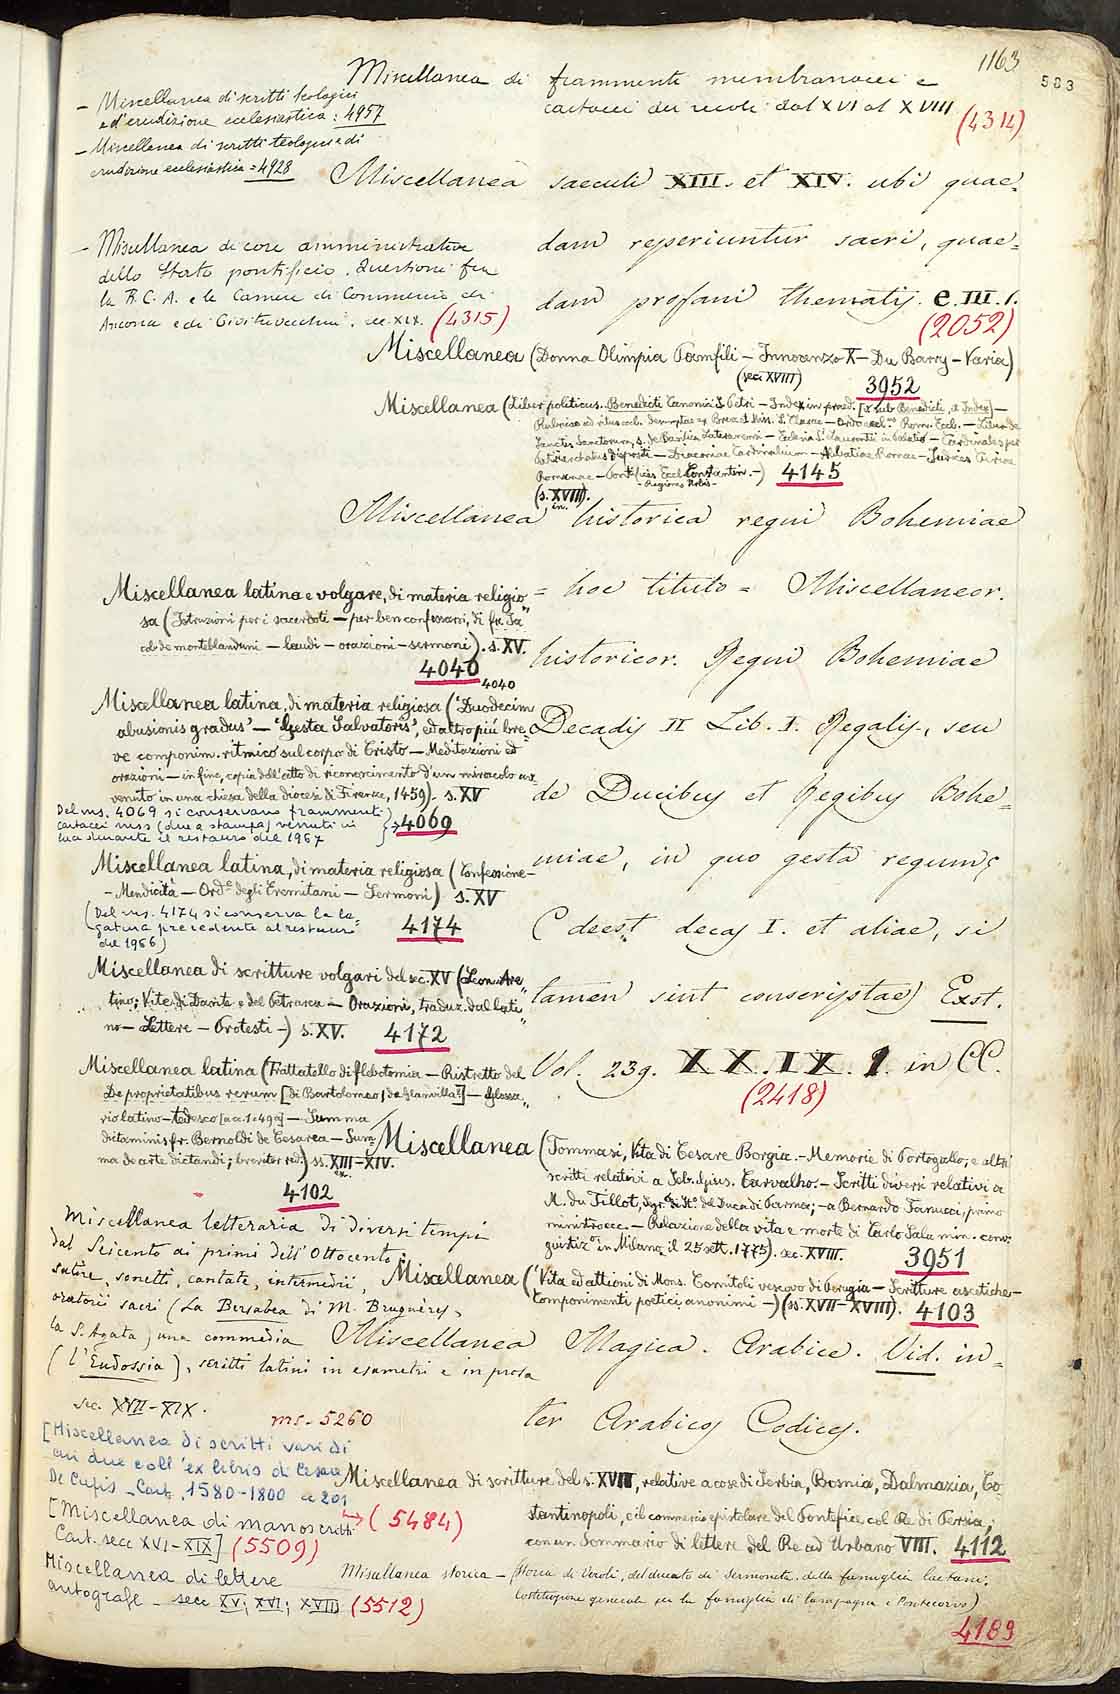 1163
583
Miscellanea di frammenti membranacei e
cartacei dei secoli dal XVI al XVIII
(4314)
– Miscellanea di scritti teologici
e d'erudizione ecclesiastica: 4957
– Miscellanea di scritti teologici e di
erudizione ecclesiastica = 4928
Miscellanea saeculi XIII. et XIV. ubi quae=
dam reperiuntur sacri, quae=
dam profani thematis. e. III. 1.
(2052)
– Miscellanea di cose amministrative
dello Stato pontificio. Questioni fra
la R.C.A. e le Camere di Commercio di
Ancona e di Civitavecchia. sec. XIX. (4315)
Miscellanea (Donna Olimpia Pamfili – Innocenzo X – Du Barry – Varia)
(sec. XVIII) 3952
Miscellanea (Liber politicus.. Benedicti Canonici S. Petri – Index in praed. [et sub Benedicti, et Index] –
Romanae – Pontifices Eccl. Constantin. –) 4145
– Regiones Urbis –
(s. XVIII).
in.
Miscellanea historica regni Bohemiae
= hoc titulo = Miscellaneor.
historicor. Regni Bohemiae
Decadis II Lib. I. Regalis, seu
de Ducibus et Regibus Bohe=
miae, in quo gesta regum;
(deest decas I. et aliae, si
tamen sint conscriptae) Exst.
Vol. 239. XX. IX. 1. in CC.
(2418)
Miscellanea latina e volgare, di materia religio
sa (Istruzioni per i sacerdoti – per ben confessarsi, di fr. Ja"
cob de monteblanduni – laudi – orazioni – sermoni). s. XV.
4040
4040
Miscellanea latina, di materia religiosa ('Duodecim
abusionis gradus' – 'Gesta Salvatoris', ed altro più bre"
ve componim. ritmico sul corpo di Cristo – Meditazioni ed
orazioni – in fine, copia dell'atto di riconoscimento d'un miracolo av"
venuto in una chiesa della diocesi di Firenze, 1459). s. XV
4069
Del ms. 4069 si conservano frammenti
cartacei mss (due a stampa) venuti in
luce durante il restauro del 1967
Miscellanea latina, di materia religiosa (Confessione –
– Mendicità – Ord.e degli Eremitani – Sermoni) s. XV
4174
(Del ms. 4174 si conserva la le=
gatura precedente al restauro
del 1966)
Miscellanea di scritture volgari del sec. XV (Leon. Are"
tino; Vite di Dante e del Petrarca – Orazioni, traduz. dal lati"
no – Lettere – Protesti –) s. XV. 4172
Miscellanea latina (Trattatello di flebotomia – Ristretto del
De proprietatibus rerum [di Bartolomeo de Glanvilla?] – Glossa"
rio latino-tedesco [a cc. 1-49a] – Summa
dictaminis fr. Bernoldi de Cesarea – Sum"
ma de arte dictandi; breviter red.) ss. XIII–XIV.
ex.
4102
Miscellanea (Tommasi, Vita di Cesare Borgia. – Memorie di Portogallo, e altri
scritti relativi a Seb. Gius. Carvalho. – Scritti diversi relativi a
M. du Tillot, Segr. di St.o del Duca di Parma; – a Bernardo Tanucci, primo
ministro ecc. – Relazione della vita e morte di Carlo Sala min. conv.
giustiz.o in Milano il 25 sett. 1775). sec. XVIII. 3951
Miscellanea letteraria di diversi tempi
dal Seicento ai primi dell'Ottocento:
satire, sonetti, cantate, intermedii,
oratorii sacri (La Bersabea di M. Bruguères,
la S. Agata) una commedia
(l'Eudossia), scritti latini in esametri e in prosa
sec. XVII–XIX.
ms. 5260
Miscellanea ('Vita ed attioni di Mons. Comitoli vescovo di Perugia – Scritture ascetiche –
Componimenti poetici anonimi –) (ss. XVII–XVIII). 4103
Miscellanea Magica. Arabice. Vid. in=
ter Arabicos Codices.
[Miscellanea di scritti vari di
cui due coll'ex libris di Cesare
De Cupis – Cart. 1580-1800 cc 201
(5484)
[Miscellanea di manoscritti
Cart. secc XVI–XIX] (5509)
Miscellanea di lettere
autografe – secc XV; XVI; XVIII (5512)
Miscellanea di scritture del s. XVII, relative a cose di Serbia, Bosnia, Dalmazia, Co
stantinopoli, e il commercio epistolare del Pontefice col Re di Persia;
con un Sommario di lettere del Re ad Urbano VIII. 4112
Miscellanea storica – (Storia di Veroli, del ducato di Sermoneta, della famiglia Caetani;
Costituzione generale per la famiglia di Campagna e Pontecorvo)
4189